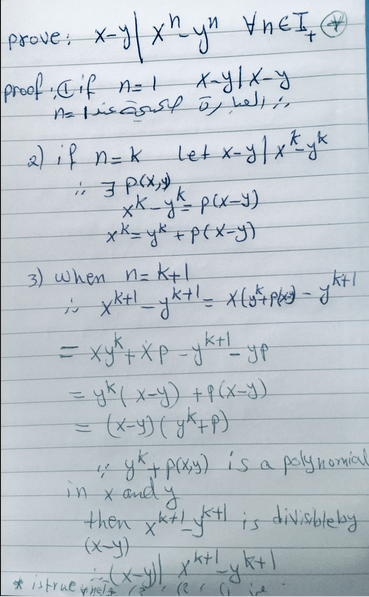 prove: x-y | xⁿ-yⁿ ∀n∈I₊ (*)
proof: ① if n=1 x-y | x-y
∴ العبارة صحيحة عند n=1
2) if n=k let x-y | x^k-y^k
∴ ∃ P(x,y)
x^k-y^k = P(x-y)
x^k = y^k + P(x-y)
3) when n=k+1
∴ x^{k+1} - y^{k+1} = x(y^k+P(x-y)) - y^{k+1}
= xy^k + xP - y^{k+1} - yP
= y^k(x-y) + P(x-y)
= (x-y)(y^k+P)
∵ y^k+P(x,y) is a polynomial
in x and y
then x^{k+1}-y^{k+1} is divisible by
(x-y)
∴ (x-y) | x^{k+1}-y^{k+1}
* is true